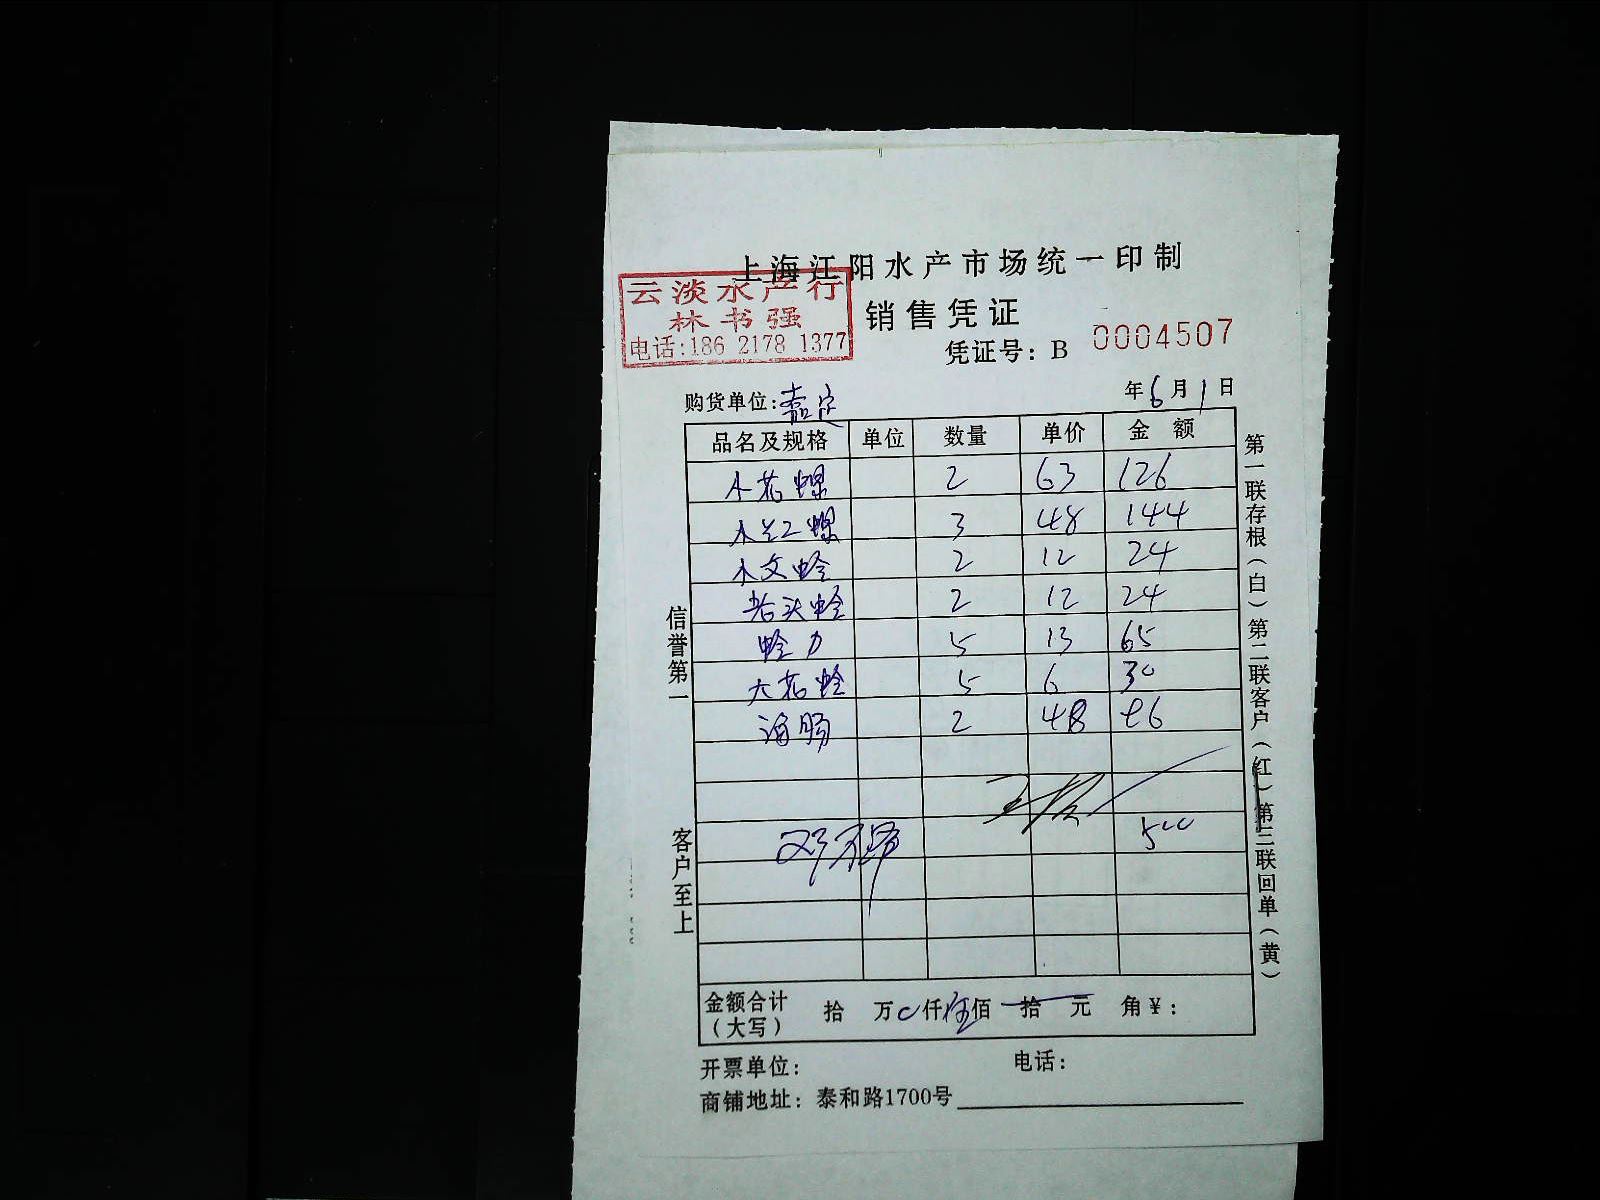 上海江阳水产市场统一印制
云淡水产行
林书强
电话:186 2178 1377
销售凭证
凭证号: B 0004507
购货单位: 嘉定 年 6 月 1 日
品名及规格 单位 数量 单价 金额
小花螺 2 63 126
小红螺 3 48 144
小文蛤 2 12 24
老头蛤 2 12 24
蛤力 5 13 65
大花蛤 5 6 30
海肠 2 48 96
500
金额合计 拾 万 0 仟 伍 佰 拾 元 角 ¥:
(大写)
开票单位: 电话:
商铺地址: 泰和路1700号
信誉第一
客户至上
第一联存根(白)第二联客户(红)第三联回单(黄)